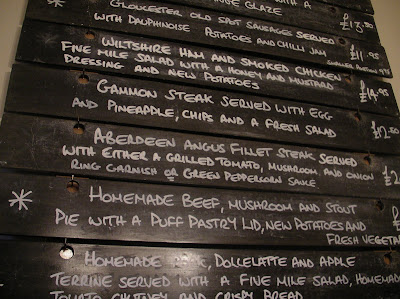 GLAZE
GLOUCESTER OLD SPOT SAUSAGES SERVED
WITH DAUPHINOISE POTATOES AND CHILLI JAM
WILTSHIRE HAM AND SMOKED CHICKEN £11.95
FIVE MILE SALAD WITH A HONEY AND MUSTARD
DRESSING AND NEW POTATOES
GAMMON STEAK SERVED WITH EGG
AND PINEAPPLE, CHIPS AND A FRESH SALAD
ABERDEEN ANGUS FILLET STEAK SERVED
WITH EITHER A GRILLED TOMATO, MUSHROOM, AND ONION
RING GARNISH OR GREEN PEPPERCORN SAUCE
* HOMEMADE BEEF, MUSHROOM AND STOUT
PIE WITH A PUFF PASTRY LID, NEW POTATOES AND
FRESH
HOMEMADE DOLCELATTE AND APPLE
TERRINE SERVED WITH A FIVE MILE SALAD,
TOMATO CHUTNEY AND CRISPY BREAD